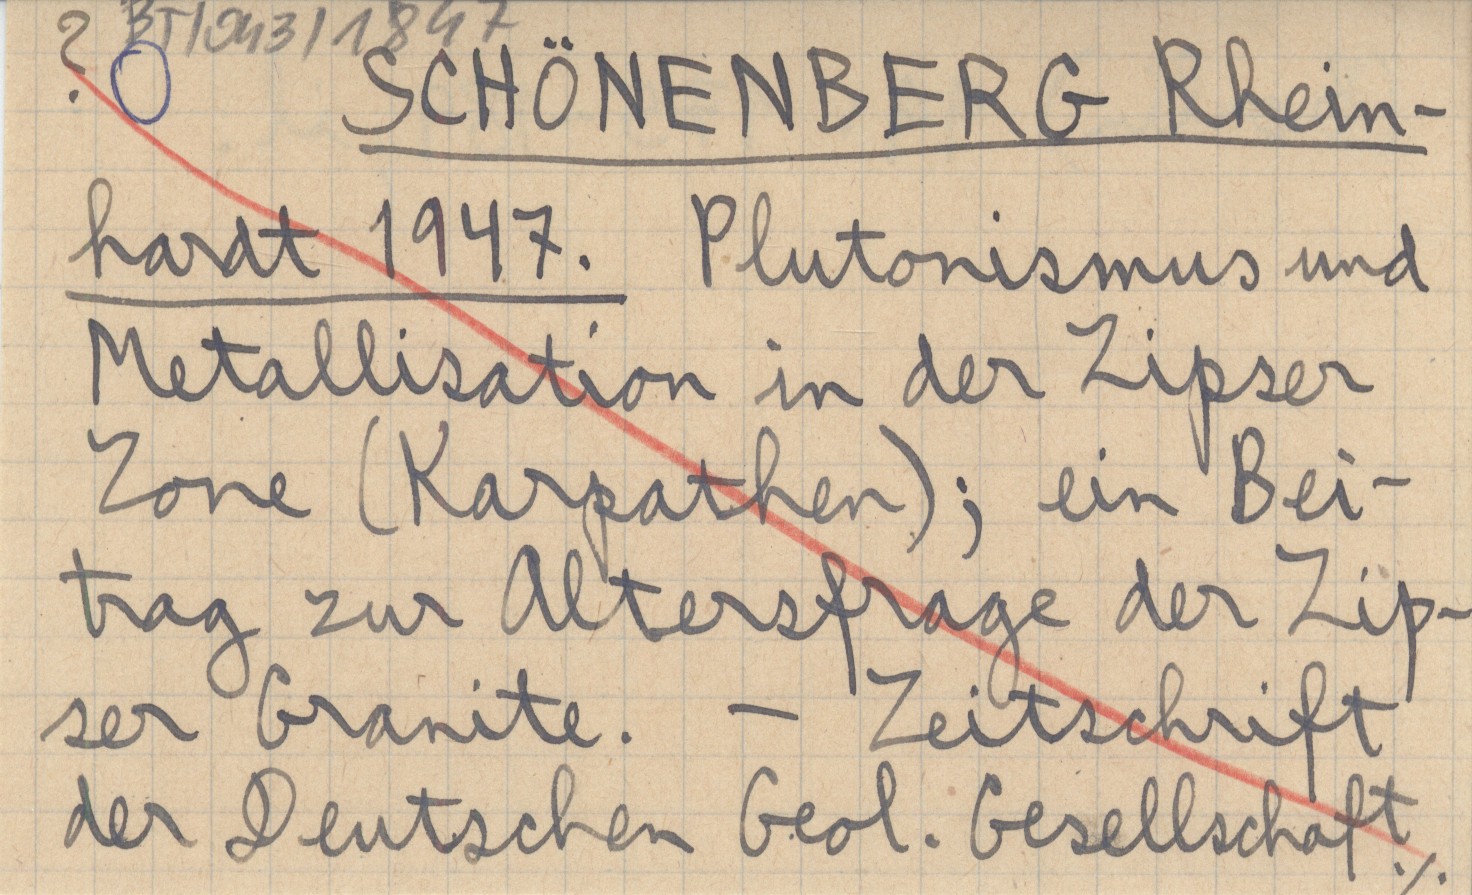 ? BT/043/1847
SCHÖNENBERG Rhein-
hardt 1947. Plutonismus und
Metallisation in der Zipser
Zone (Karpathen); ein Bei-
trag zur Altersfrage der Zip-
ser Granite. — Zeitschrift
der Deutschen Geol. Gesellschaft ./.